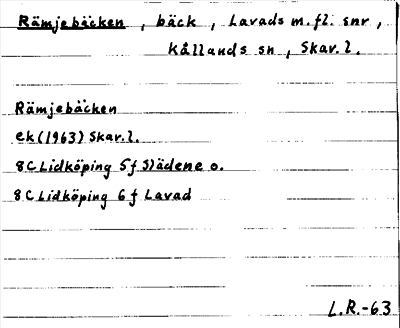 Rämjebäcken, bäck, Lavads m.fl. snr,
Kållands sn, Skar.l.
Rämjebäcken
ek(1963) Skar.l.
8C Lidköping 5f Slädene o.
8C Lidköping 6f Lavad
L.R.-63